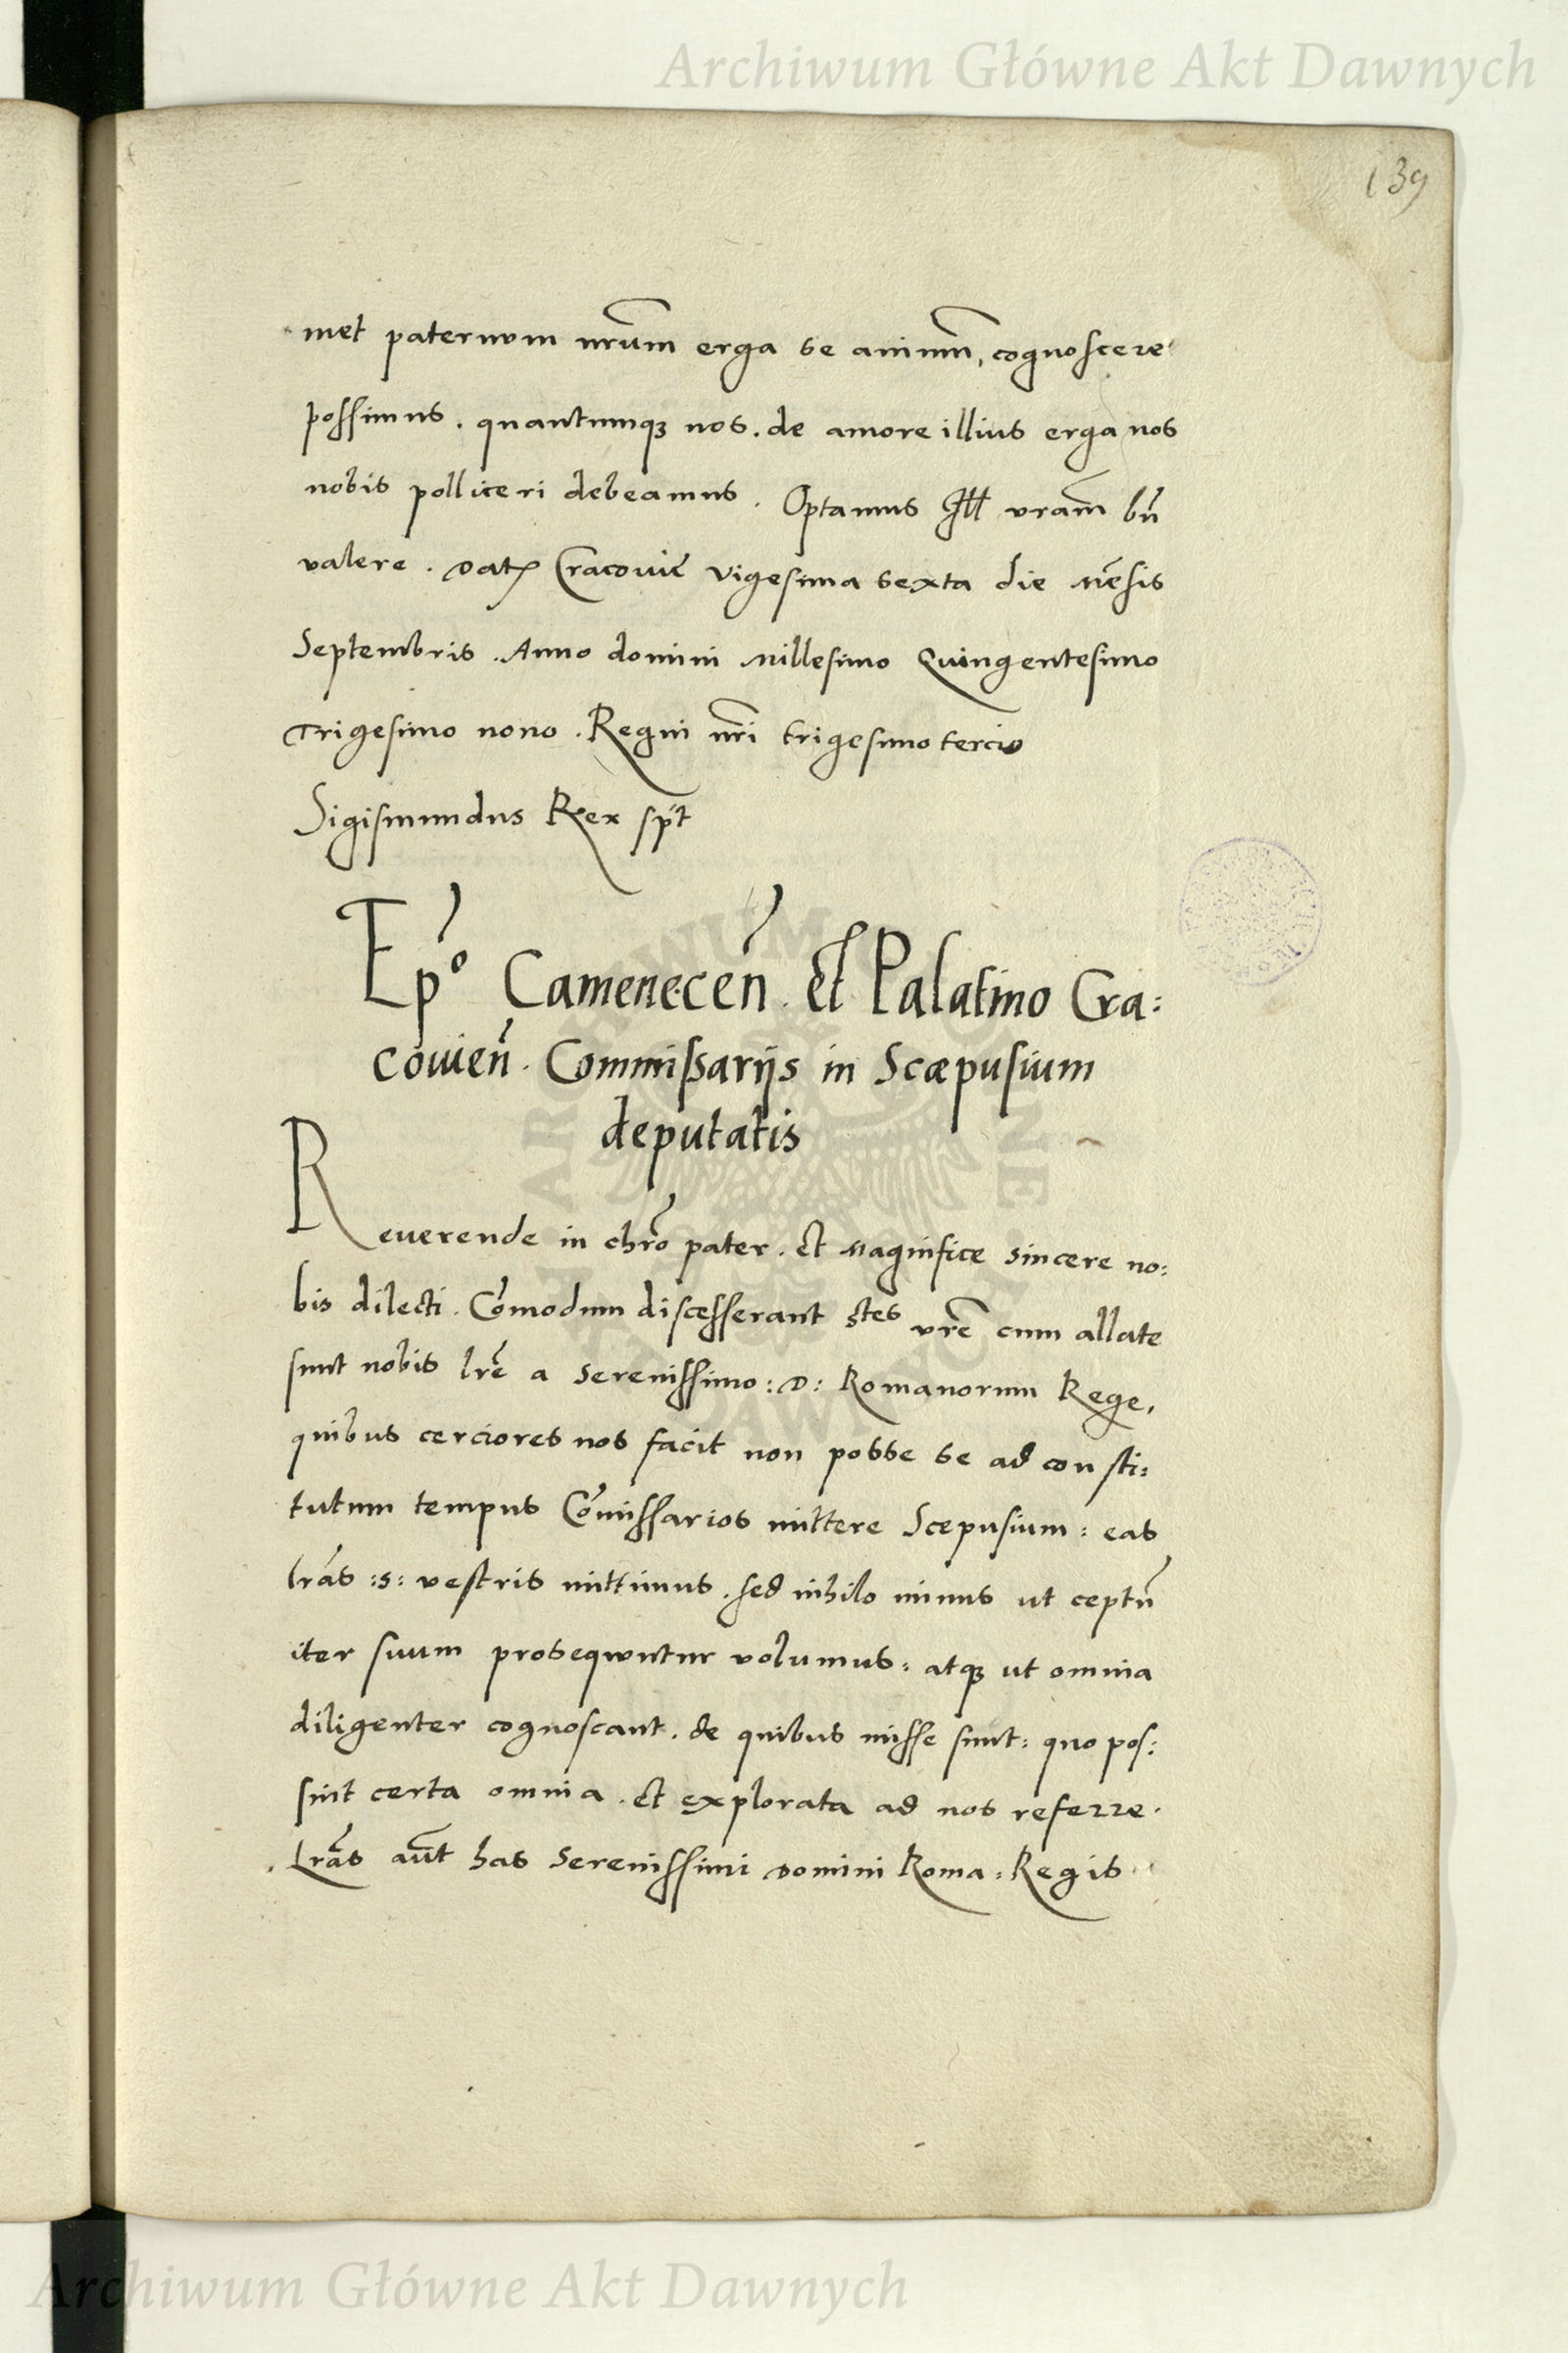 Archiwum Główne Akt Dawnych
139
met paternum nr̃um erga se animũ, cognoscere
possimus . quantumqꝫ nos . de amore illius erga nos
nobis polliceri debeamus . Optamus Ill vram̃ bñ
valere . Dat Cracoviẽ vigesima sexta die Mẽsis
Septembris . Anno domini Millesimo Quingentesimo
Trigesimo nono . Regni nr̃i trigesimo tercio
Sigismundus Rex spt̃
Ep̃o Camenecen̄ . Et Palatino Cra:
covien̄ . Commissarijs in Scæpusium
deputatis
Reverende in chr̃o pater . et Magnifice sincere no:
bis dilecti . Cõmodum discesserant s̃tes vrẽ cum allate
sunt nobis lrẽ a Serenissimo : D : Romanorum Rege,
quibus cerciores nos facit non posse se ad consti:
tutum tempus Cõmissarios mittere Scepusium : eas
lrãs :s: vestris mittimus . sed nihilo minus ut ceptũ
iter suum prosequuntur volumus : atqꝫ ut omnia
diligenter cognoscant . de quibus misse sunt : quo pos:
sint certa omnia . et explorata ad nos referre .
Lrãs aũt has Serenissimi Domini Roma : Regis
Archiwum Główne Akt Dawnych